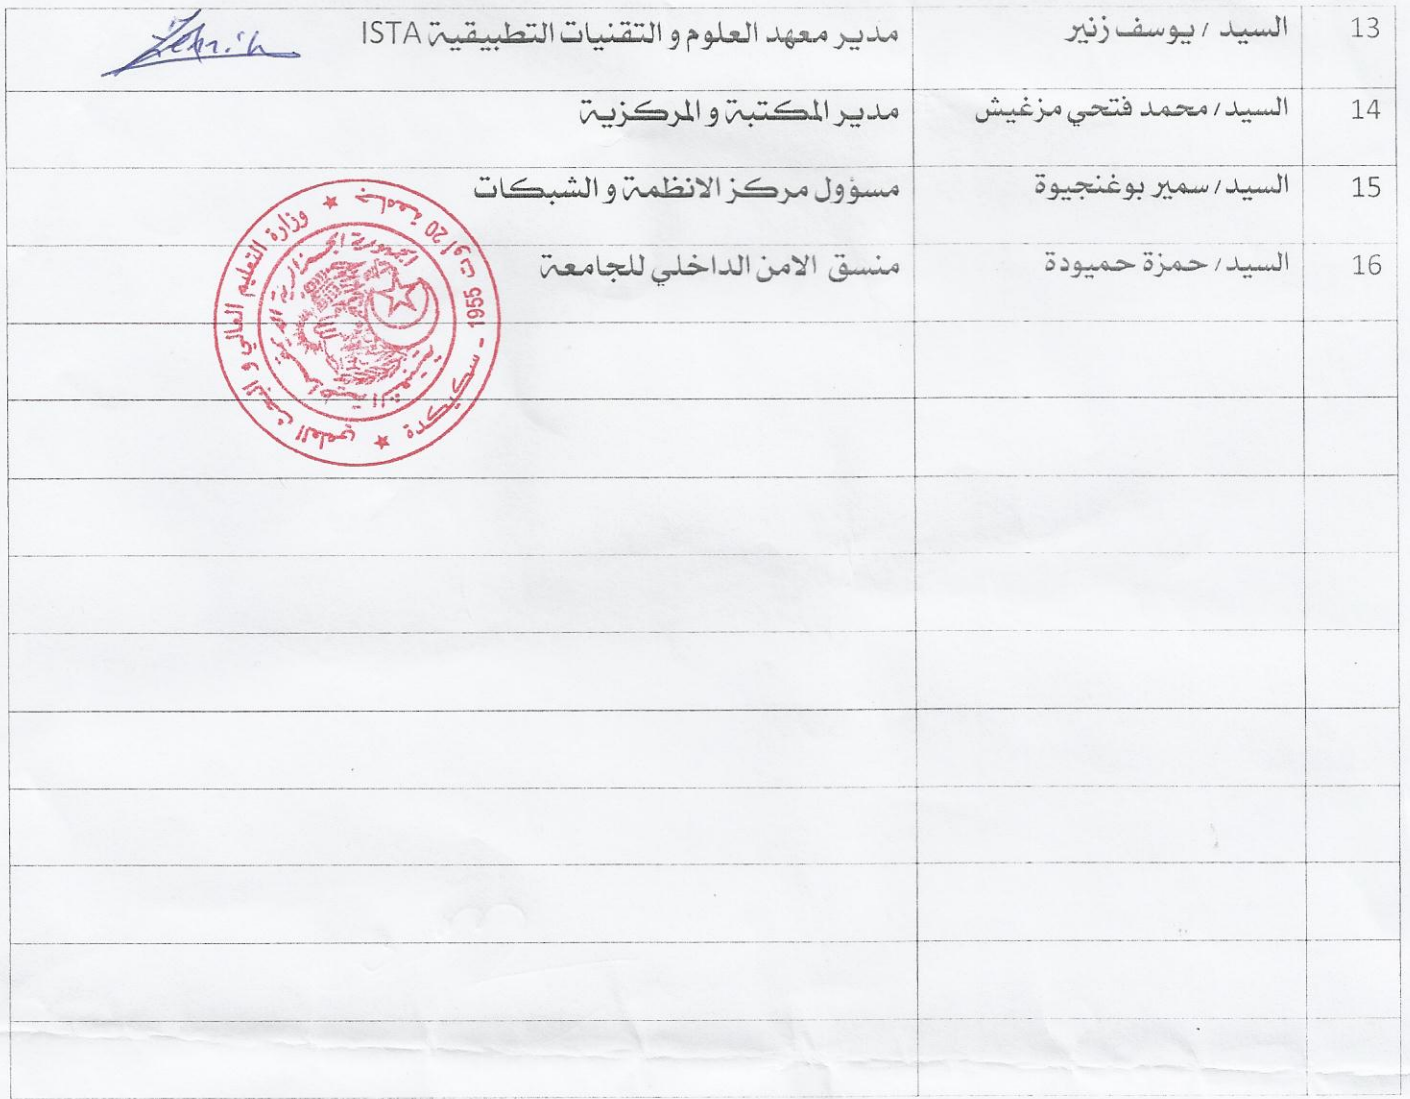 13 السيد / يوسف زنير مدير معهد العلوم و التقنيات التطبيقية ISTA
14 السيد/ محمد فتحي مزغيش مدير المكتبة و المركزية
15 السيد/ سمير بوغنجيوة مسؤول مركز الانظمة و الشبكات
16 السيد/ حمزة حميودة منسق الامن الداخلي للجامعة
وزارة التعليم العالي و البحث العلمي
جامعة 20 اوت 1955 - سكيكدة
الجمهورية الجزائرية الديمقراطية الشعبية